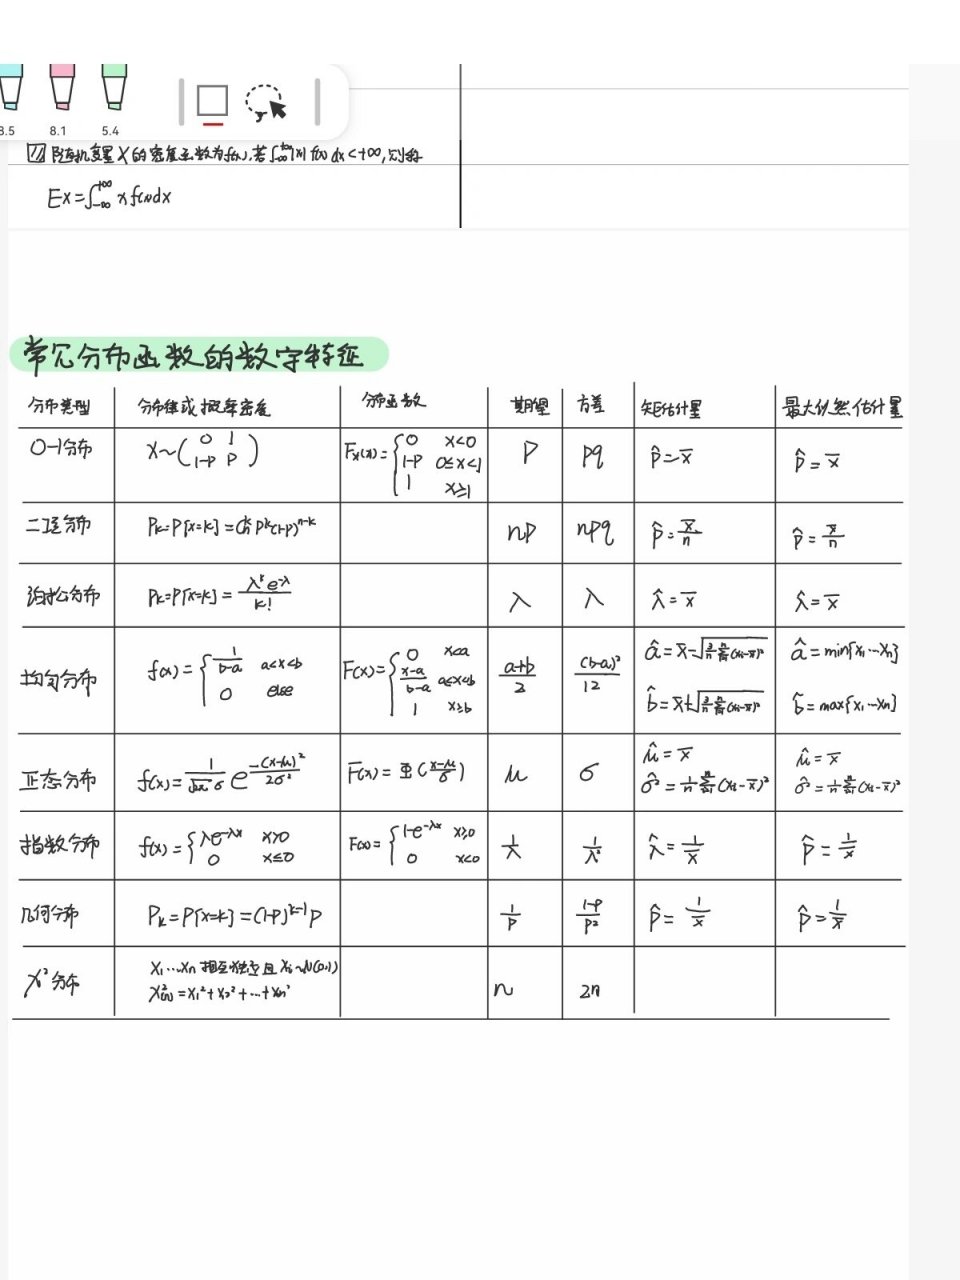 8.5 8.1 5.4
随机变量X的密度函数为f(x),若∫_{-∞}^{+∞}|x|f(x)dx<+∞,则称
EX=∫_{-∞}^{+∞} x f(x)dx
常见分布函数的数字特征
分布类型 分布律或概率密度 分布函数 期望 方差 矩估计量 最大似然估计量
0-1分布 X~(0 1; 1-P P) F_X(x)={0 x<0; 1-P 0≤x<1; 1 x≥1 P Pq p̂=x̄ p̂=x̄
二项分布 P_k=P{x=k}=C_n^k P^k(1-P)^{n-k} nP nPq p̂=x̄/n p̂=x̄/n
泊松分布 P_k=P{x=k}=λ^k e^{-λ}/k! λ λ λ̂=x̄ λ̂=x̄
均匀分布 f(x)={1/(b-a) a<x<b; 0 else F(x)={0 x<a; (x-a)/(b-a) a≤x<b; 1 x≥b (a+b)/2 (b-a)²/12 â=x̄-√(3/n Σ_{i=1}^n (x_i-x̄)²) b̂=x̄+√(3/n Σ_{i=1}^n (x_i-x̄)²) â=min{x₁…xₙ} b̂=max{x₁…xₙ}
正态分布 f(x)=1/(√2π σ) e^{-(x-μ)²/2σ²} F(x)=Φ((x-μ)/σ) μ σ μ̂=x̄ σ̂²=1/n Σ_{i=1}^n (x_i-x̄)² μ̂=x̄ σ̂²=1/n Σ_{i=1}^n (x_i-x̄)²
指数分布 f(x)={λe^{-λx} x>0; 0 x≤0 F(x)={1-e^{-λx} x≥0; 0 x<0 1/λ 1/λ² λ̂=1/x̄ p̂=1/x̄
几何分布 P_k=P{x=k}=(1-P)^{k-1}P 1/P (1-P)/P² p̂=1/x̄ p̂=1/x̄
χ²分布 X₁…Xₙ 相互独立且 X_i~N(0,1) χ²(n)=X₁²+X₂²+…+Xₙ² n 2n